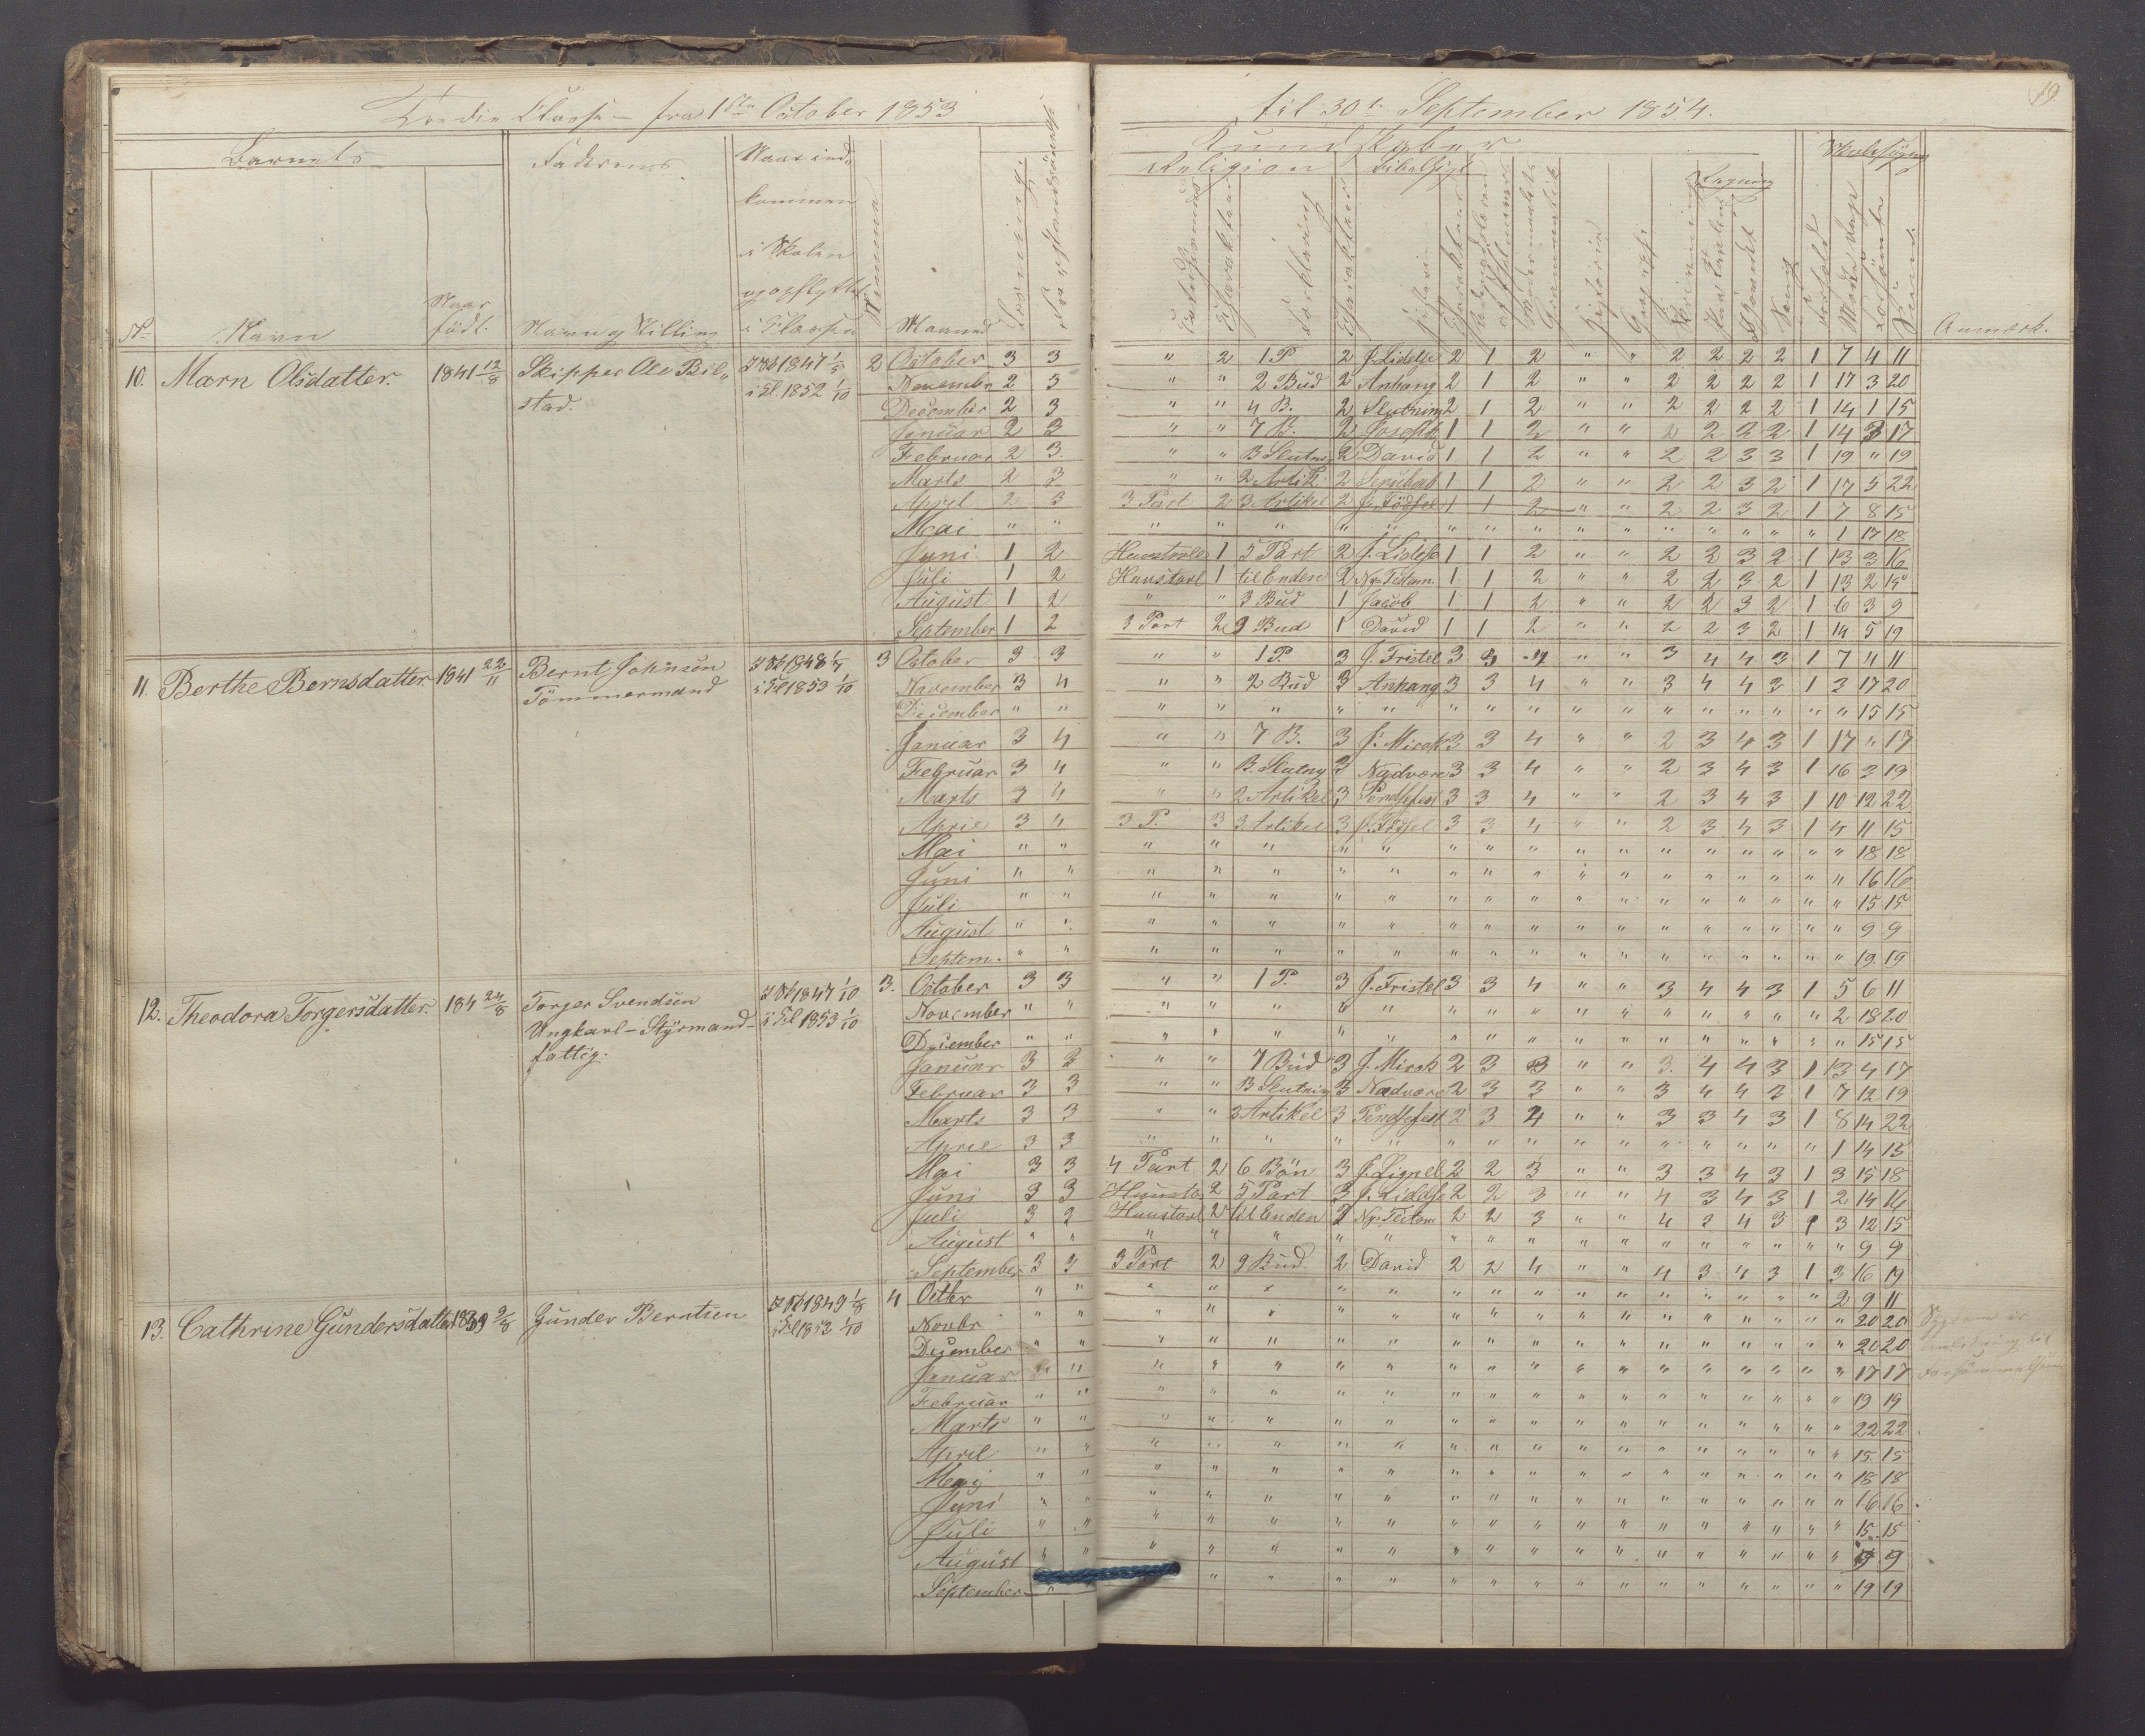 Tredie Classe – fra 1ste October 1853 til 30te September 1854.
19
Barnets Faderens Naar ind-
kommen
i Skolen
og opflyttet
i Classen
Evne Maaned
No. Navn Naar född. Navn og Stilling
Kundskaber
Religion Bibelhist. Regning Skolesøgn.
Forklaring Characteer Historie Geografi Skrivning Sang Forhold Mødte Dage Forsömte Anmærk.
10. Marn Olsdatter. 1841 12/8 Skipper Ole Bil- stad. 1847 1/5 i Cl. 1852 1/10 2
October 3 3 " 2 1 P. 2 J. Lidelse 2 1 2 " " 2 2 2 2 1 7 4 11
November 2 3 " " 2 Bud 2 Anhang 2 1 2 " " 2 2 2 2 1 17 3 20
December 2 3 " " 4 B. 2 Slutning 2 1 2 " " 2 2 2 2 1 14 1 15
Januar 2 3 " " 7 B. 2 Joseph 1 1 2 " " 2 2 2 2 1 14 3 17
Februar 2 3 " " B Slutn. 2 David 1 1 2 " " 2 2 3 3 1 19 " 19
Marts 2 3 " " 2 Artik. 2 1 1 2 " " 2 2 3 2 1 17 5 22
April 2 3 3 Part 2 3 Artikel 2 J. Födsel 1 1 2 " " 2 2 3 2 1 7 8 15
Mai " " " " " " " " " " " " " " " " " 1 17 18
Juni 1 2 Huustavle 1 5 Part 2 J. Lidelse 1 1 2 " " 2 2 3 2 1 13 3 16
Juli 1 2 Huustavl 1 til Enden 2 Ny Testam. 1 1 2 " " 2 2 3 2 1 13 2 15
August 1 2 " " 3 Bud 1 Jacob 1 1 2 " " 2 2 3 2 1 6 3 9
September 1 2 3 Part 2 9 Bud 1 David 1 1 2 " " 2 2 3 2 1 14 5 19
11. Berthe Bernsdatter. 1841 22/11 Bernt Johnsen Tömmermand 1848 1/7 i Cl 1853 1/10 3
October 3 3 " " 1 P. 3 J. Fristel 3 3 4 " " 3 4 4 3 1 7 4 11
November 3 4 " " 2 Bud 3 Anhang 3 3 4 " " 3 4 4 3 1 3 17 20
December " " " " " " " " " " " " " " " " " " 15 15
Januar 3 4 " " 7 B. 3 J. Mirak 3 3 4 " " 2 3 4 3 1 17 " 17
Februar 3 4 " " B. Slutng 3 Nadvere 3 3 4 " " 2 3 4 3 1 16 3 19
Marts 3 4 " " 2 Artikel 3 Pendsefest 3 3 4 " " 2 3 4 3 1 10 12 22
April 3 4 3 P. 3 3 Artikel 3 J. Födsel 3 3 4 " " 2 3 4 3 1 4 11 15
Mai " " " " " " " " " " " " " " " " " " 18 18
Juni " " " " " " " " " " " " " " " " " " 16 16
Juli " " " " " " " " " " " " " " " " " " 15 15
August " " " " " " " " " " " " " " " " " " 9 9
Septem. " " " " " " " " " " " " " " " " " " 19 19
12. Theodora Torgersdatter. 184 24/8 Torger Svendsen Ungkarl – Styrmand – fattig. 1847 1/10 i Cl 1853 1/10 3.
October 3 3 " " 1 P. 3 J. Fristel 3 3 4 " " 3 4 4 3 1 5 6 11
November " " " " " " " " " " " " " " " " " 2 18 20
December " " " " " " " " " " " " " " " " " " 15 15
Januar 3 3 " " 7 Bud 3 J. Mirak 2 3 3 " " 3. 4 4 3 1 13 4 17
Februar 3 3 " " B Slutning 3 Nadvere 2 3 3 " " 3 4 4 3 1 7 12 19
Marts 3 3 " " 2 Artikel 3 Pendsefest 2 3 4 " " 3 3 4 3 1 8 14 22
April 3 3 " " " " " " " " " " " " " " " 1 14 15
Mai 3 3 4 Part 2 6 Bön 3 J. Lignel 2 2 3 " " 3 3 4 3 1 3 15 18
Juni 3 3 Huusta 2 5 Part 3 J. Lidelse 2 2 3 " " 4 3 4 3 1 2 14 16
Juli 3 3 Huustavl 2 til Enden 2 Ny Testam 2 2 3 " " 4 3 4 3 1 3 12 15
August " " " " " " " " " " " " " " " " " " 9 9
September 3 3 3 Part 2 9 Bud 2 David 2 2 4 " " 4 3 4 3 1 3 16 19
13. Cathrine Gundersdatter 1839 9/8 Gunder Berntsen 1849 1/8 i Cl 1853 1/10 4
Octbr " " " " " " " " " " " " " " " " " 2 9 11
Novbr " " " " " " " " " " " " " " " " " " 20 20 Sygdom er
December " " " " " " " " " " " " " " " " " " 20 20 Anledning til
Januar " " " " " " " " " " " " " " " " " " 17 17 Forsömmelsen
Februar " " " " " " " " " " " " " " " " " " 19 19
Marts " " " " " " " " " " " " " " " " " " 22 22
April " " " " " " " " " " " " " " " " " " 15 15
Maj " " " " " " " " " " " " " " " " " " 18 18
Juni " " " " " " " " " " " " " " " " " " 16 16
Juli " " " " " " " " " " " " " " " " " " 15 15
August " " " " " " " " " " " " " " " " " " 9 9
September " " " " " " " " " " " " " " " " " 19 19